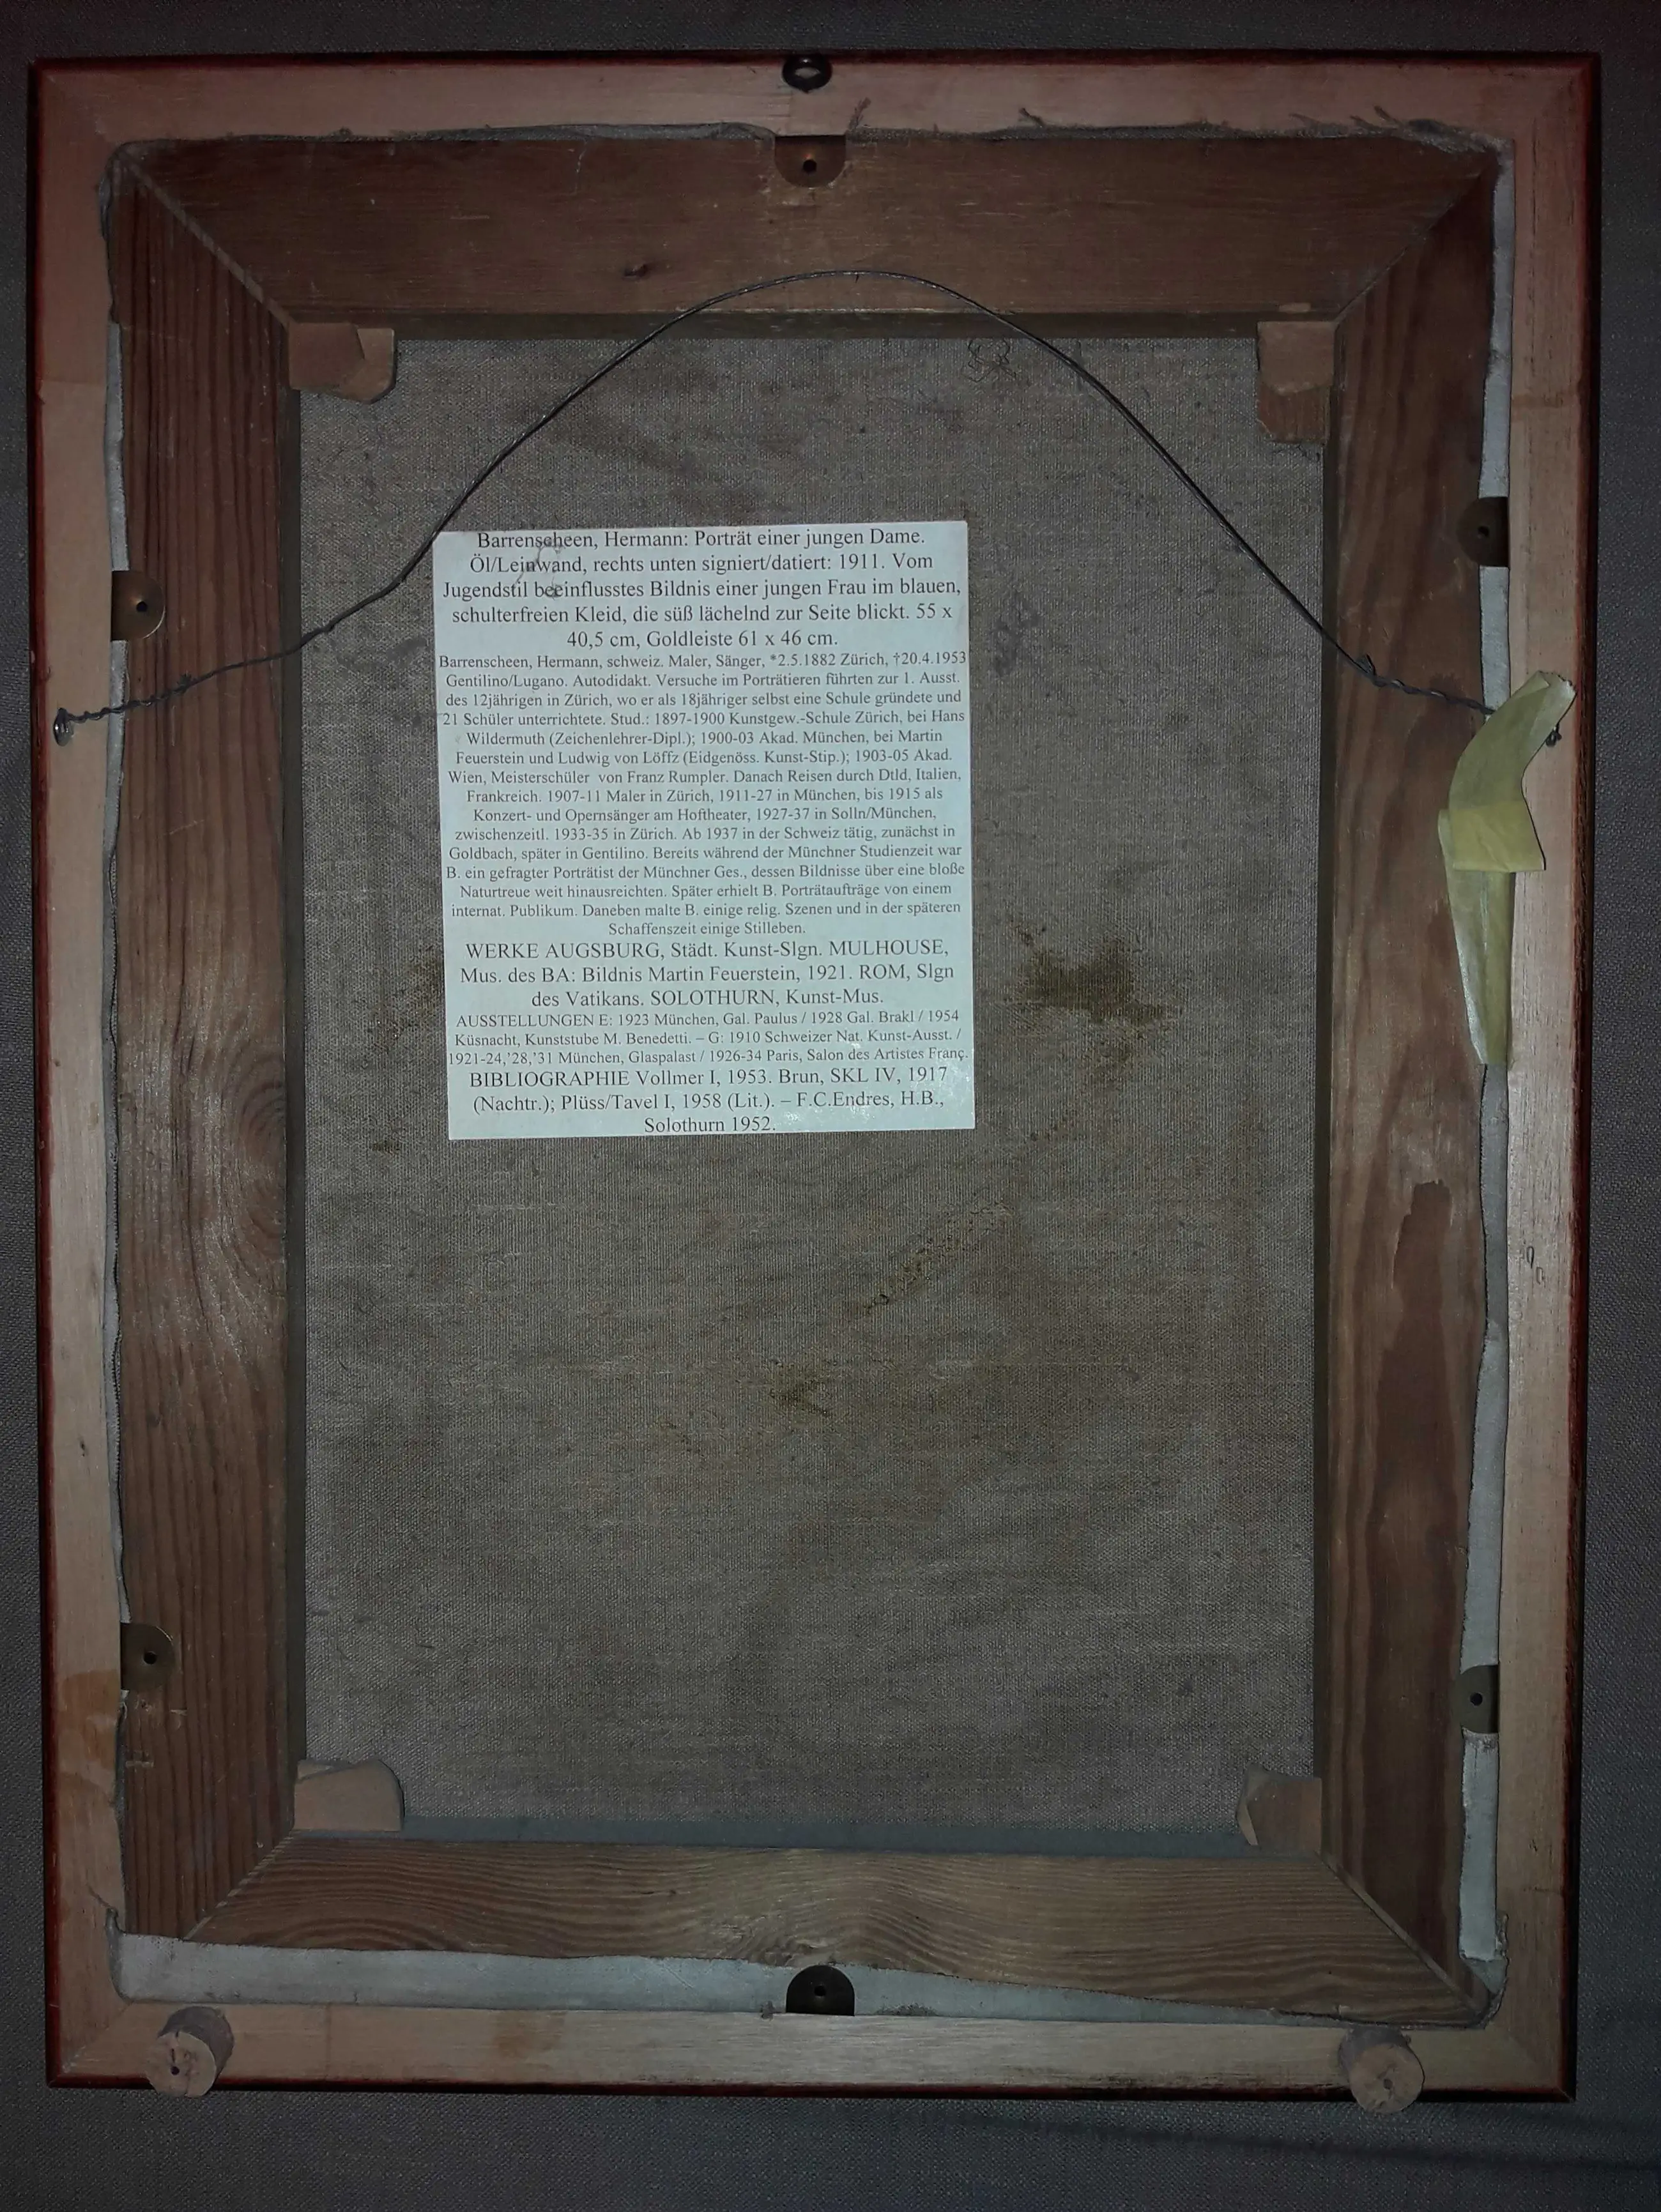 Barrenscheen, Hermann: Porträt einer jungen Dame.
Öl/Leinwand, rechts unten signiert/datiert: 1911. Vom
Jugendstil beeinflusstes Bildnis einer jungen Frau im blauen,
schulterfreien Kleid, die süß lächelnd zur Seite blickt. 55 x
40,5 cm, Goldleiste 61 x 46 cm.
Barrenscheen, Hermann, schweiz. Maler, Sänger, *2.5.1882 Zürich, †20.4.1953
Gentilino/Lugano. Autodidakt. Versuche im Porträtieren führten zur 1. Ausst.
des 12jährigen in Zürich, wo er als 18jähriger selbst eine Schule gründete und
21 Schüler unterrichtete. Stud.: 1897-1900 Kunstgew.-Schule Zürich, bei Hans
Wildermuth (Zeichenlehrer-Dipl.); 1900-03 Akad. München, bei Martin
Feuerstein und Ludwig von Löffz (Eidgenöss. Kunst-Stip.); 1903-05 Akad.
Wien, Meisterschüler von Franz Rumpler. Danach Reisen durch Dtld, Italien,
Frankreich. 1907-11 Maler in Zürich, 1911-27 in München, bis 1915 als
Konzert- und Opernsänger am Hoftheater, 1927-37 in Solln/München,
zwischenzeitl. 1933-35 in Zürich. Ab 1937 in der Schweiz tätig, zunächst in
Goldbach, später in Gentilino. Bereits während der Münchner Studienzeit war
B. ein gefragter Porträtist der Münchner Ges., dessen Bildnisse über eine bloße
Naturtreue weit hinausreichten. Später erhielt B. Porträtaufträge von einem
internat. Publikum. Daneben malte B. einige relig. Szenen und in der späteren
Schaffenszeit einige Stilleben.
WERKE AUGSBURG, Städt. Kunst-Slgn. MULHOUSE,
Mus. des BA: Bildnis Martin Feuerstein, 1921. ROM, Slgn
des Vatikans. SOLOTHURN, Kunst-Mus.
AUSSTELLUNGEN E: 1923 München, Gal. Paulus / 1928 Gal. Brakl / 1954
Küsnacht, Kunststube M. Benedetti. – G: 1910 Schweizer Nat. Kunst-Ausst. /
1921-24,'28,'31 München, Glaspalast / 1926-34 Paris, Salon des Artistes Franç.
BIBLIOGRAPHIE Vollmer I, 1953. Brun, SKL IV, 1917
(Nachtr.); Plüss/Tavel I, 1958 (Lit.). – F.C.Endres, H.B.,
Solothurn 1952.